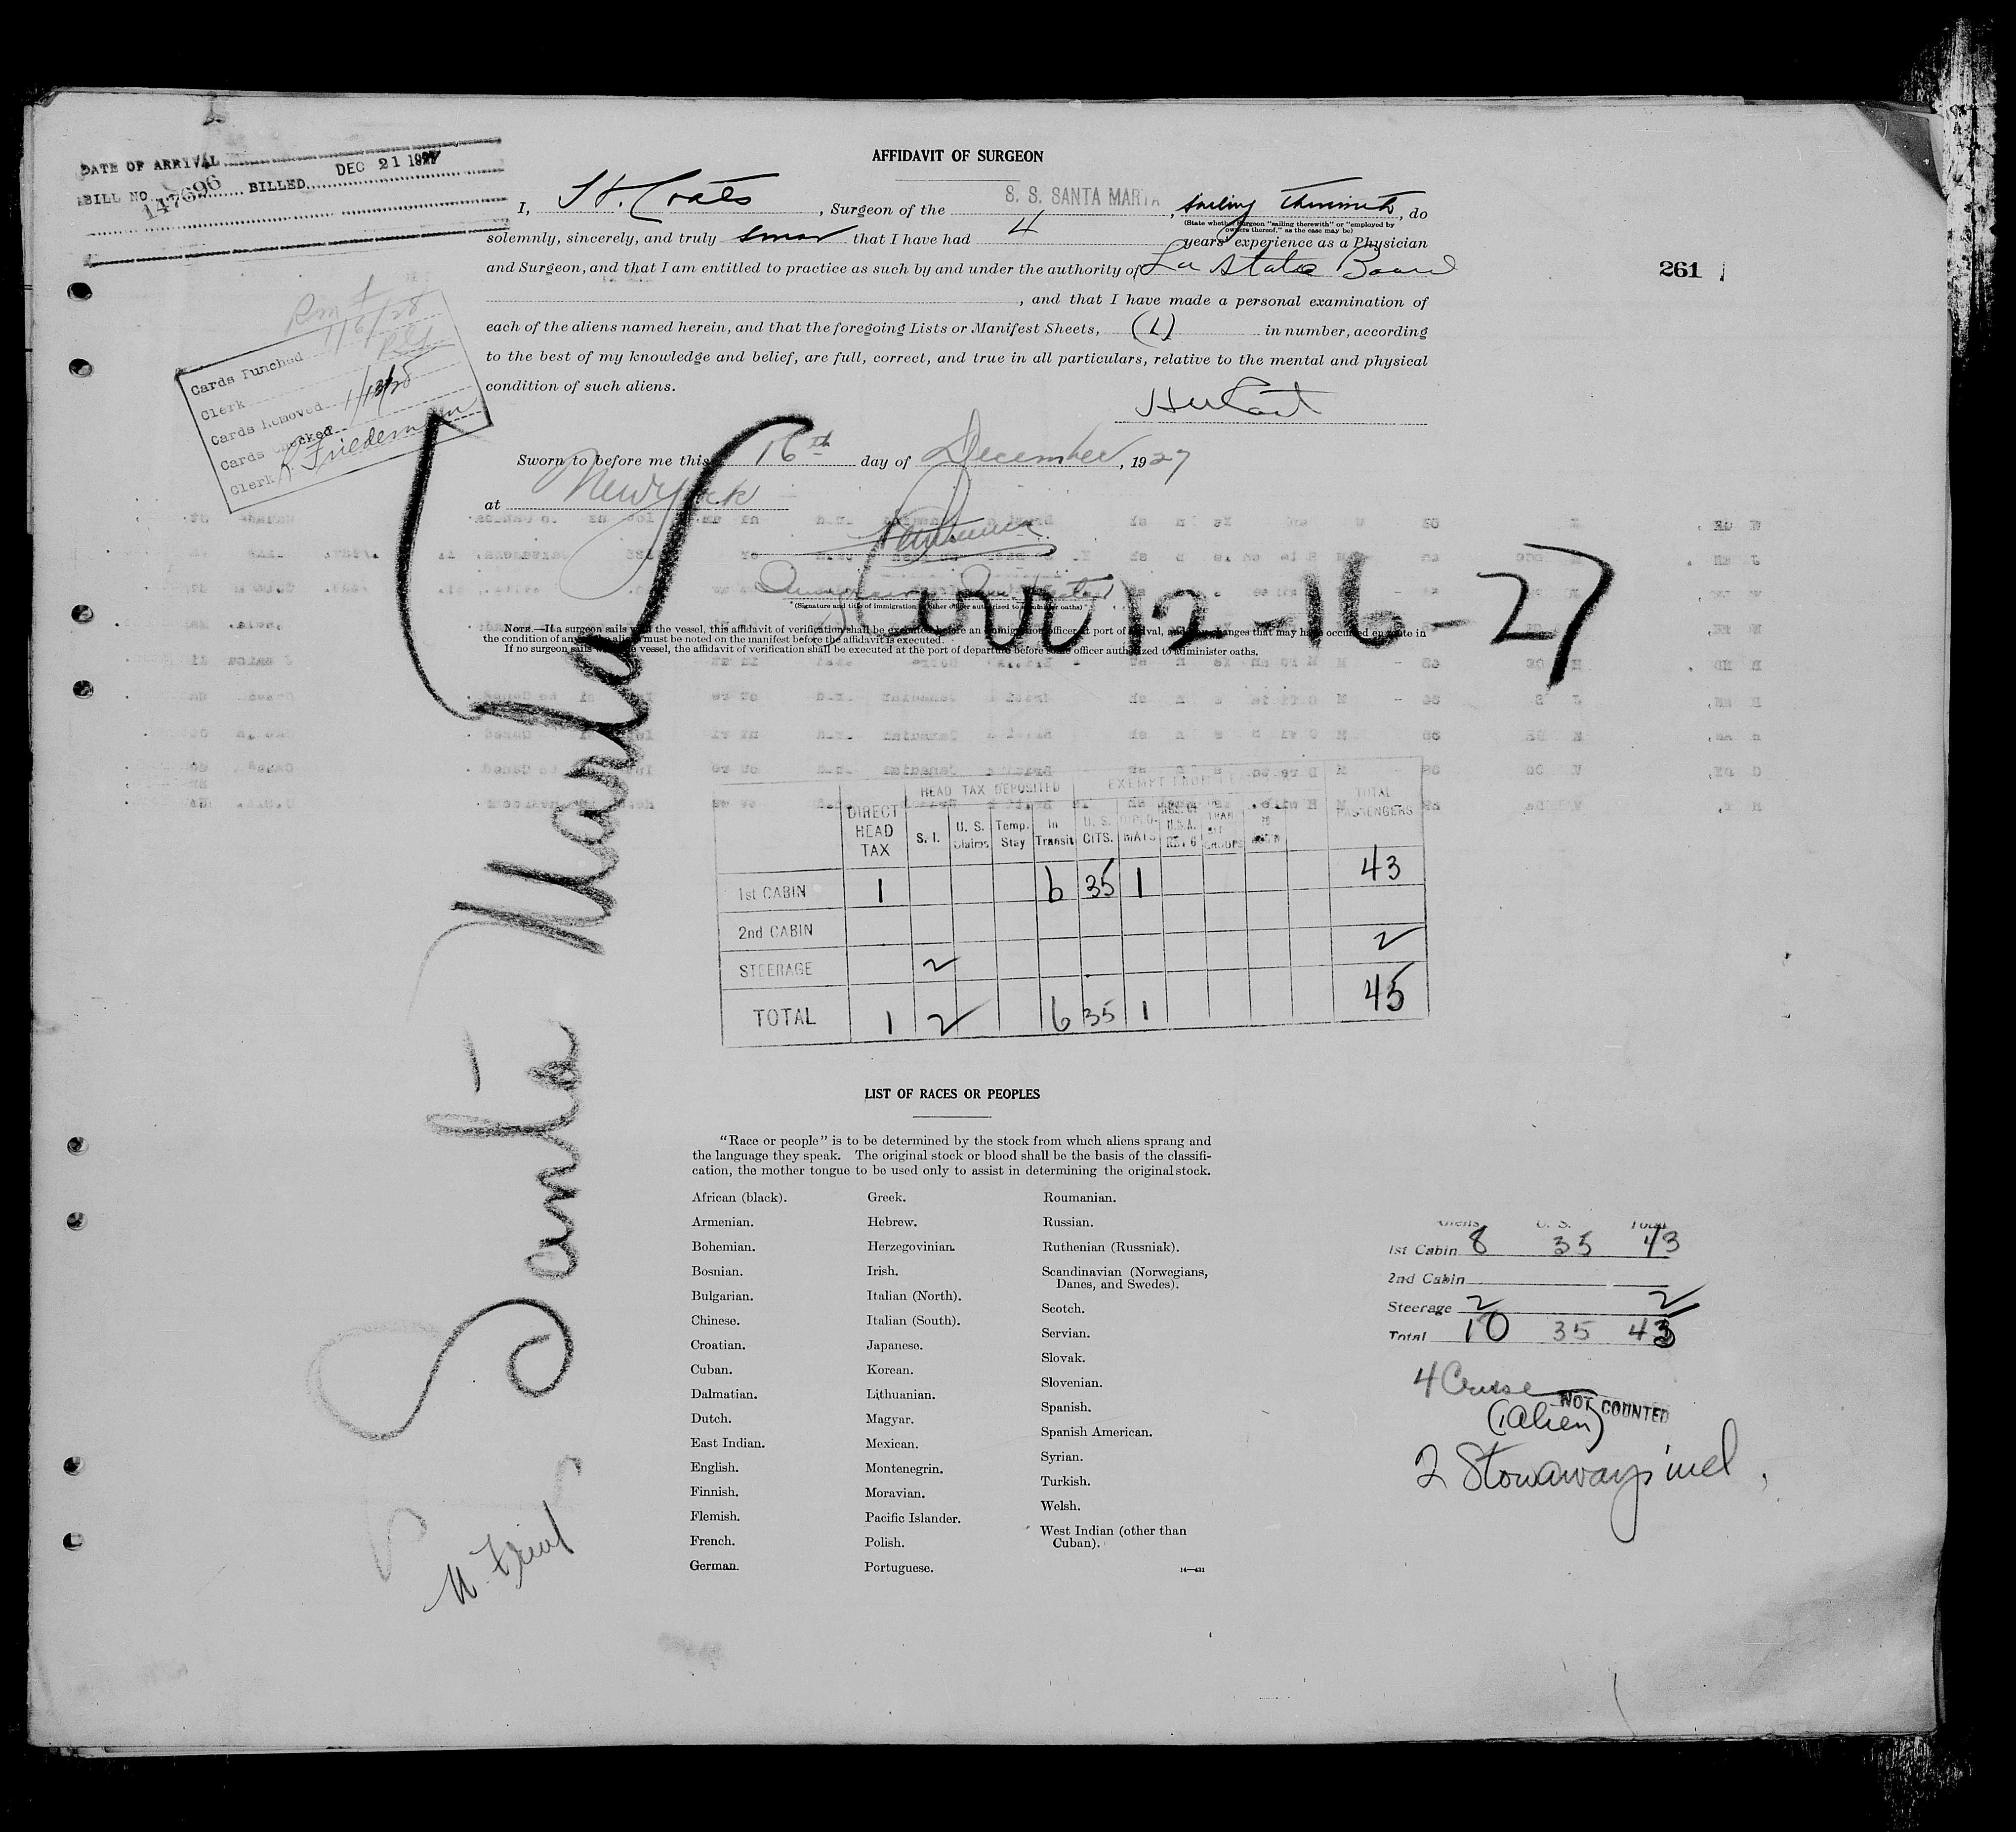 DATE OF ARRIVAL
BILL NO. 147696 BILLED DEC 21 1927
AFFIDAVIT OF SURGEON
I, H. Coats, Surgeon of the S. S. SANTA MARTA, sailing therewith, do
(State whether Surgeon "sailing therewith" or "employed by
owners thereof," as the case may be)
solemnly, sincerely, and truly swear that I have had 4 years' experience as a Physician
and Surgeon, and that I am entitled to practice as such by and under the authority of La State Board
, and that I have made a personal examination of
each of the aliens named herein, and that the foregoing Lists or Manifest Sheets, (1) in number, according
to the best of my knowledge and belief, are full, correct, and true in all particulars, relative to the mental and physical
condition of such aliens.
261
1/6/28
Cards Punched
Clerk
Cards Removed 1/13/28
Cards Checked
Clerk R. Friedman
Sworn to before me this 16th day of December, 1927
at New York
(Signature and title of immigration or other officer authorized to administer oaths)
NOTE.—If a surgeon sails with the vessel, this affidavit of verification shall be executed before an immigration officer at port of arrival, and any changes that may have occurred en route in
the condition of any alien must be noted on the manifest before the affidavit is executed.
If no surgeon sails with the vessel, the affidavit of verification shall be executed at the port of departure before some officer authorized to administer oaths.
Santa Marta
Carr 12-16-27
HEAD TAX DEPOSITED EXEMPT FROM
DIRECT HEAD TAX S. I. U. S. Claims Temp. Stay In Transit U. S. CITS. DIPLO-MATS RES. OF U.S.A. TRAN SIT GROUPS TOTAL PASSENGERS
1st CABIN 1 6 35 1 43
2nd CABIN
STEERAGE 2 2
TOTAL 1 2 6 35 1 45
LIST OF RACES OR PEOPLES
"Race or people" is to be determined by the stock from which aliens sprang and
the language they speak. The original stock or blood shall be the basis of the classifi-
cation, the mother tongue to be used only to assist in determining the original stock.
African (black).
Armenian.
Bohemian.
Bosnian.
Bulgarian.
Chinese.
Croatian.
Cuban.
Dalmatian.
Dutch.
East Indian.
English.
Finnish.
Flemish.
French.
German.
Greek.
Hebrew.
Herzegovinian.
Irish.
Italian (North).
Italian (South).
Japanese.
Korean.
Lithuanian.
Magyar.
Mexican.
Montenegrin.
Moravian.
Pacific Islander.
Polish.
Portuguese.
Roumanian.
Russian.
Ruthenian (Russniak).
Scandinavian (Norwegians,
Danes, and Swedes).
Scotch.
Servian.
Slovak.
Slovenian.
Spanish.
Spanish American.
Syrian.
Turkish.
Welsh.
West Indian (other than
Cuban).
14—431
Aliens U. S. Total
1st Cabin 8 35 43
2nd Cabin
Steerage 2 2
Total 10 35 45
4 Cruise
NOT COUNTED
(1 Alien)
2 Stowaways incl.